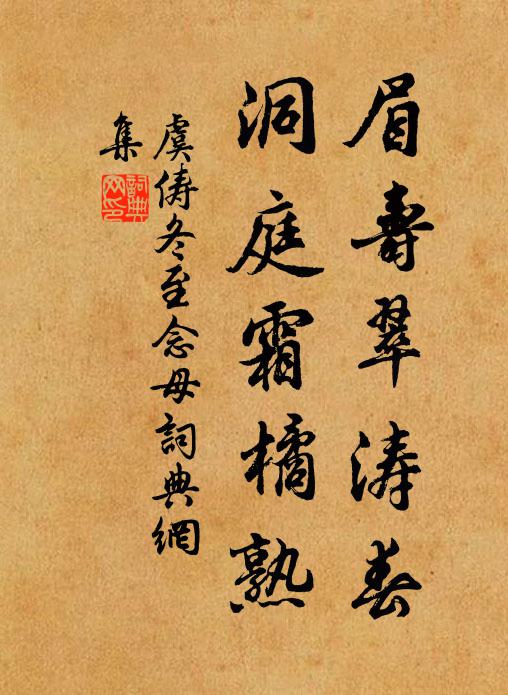 眉壽翠濤春
洞庭霜橘熟
虞儔冬至念母詞典網
集
詞典網印